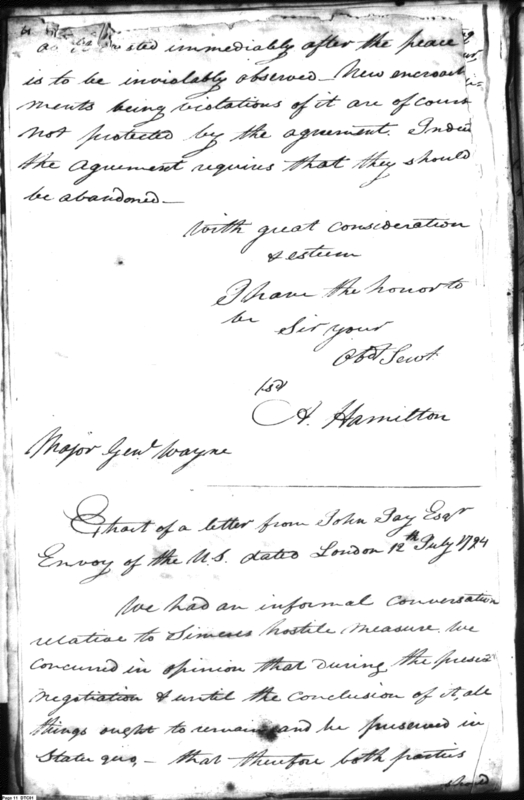 immediably after the peace
is to be inviolably observed – New encroach
ments being violations of it are of cours
not protected by the agreement. Indee
the agreement requires that they should
be abandoned –
With great consideration
& esteem
I have the honor to
be Sir your
Obdt Servt
A. Hamilton
Major Genl. Wayne
Extract of a letter from John Jay Esqr
Envoy of the U.S. dated London 12th July 1794
We had an informal conversation
relative to Simcoes hostile measure. We
concurred in opinion that during the present
negotiation & until the conclusion of it, all
things ought to remain and be preserved in
State quo, – that therefore both parties
shoud
Page 11